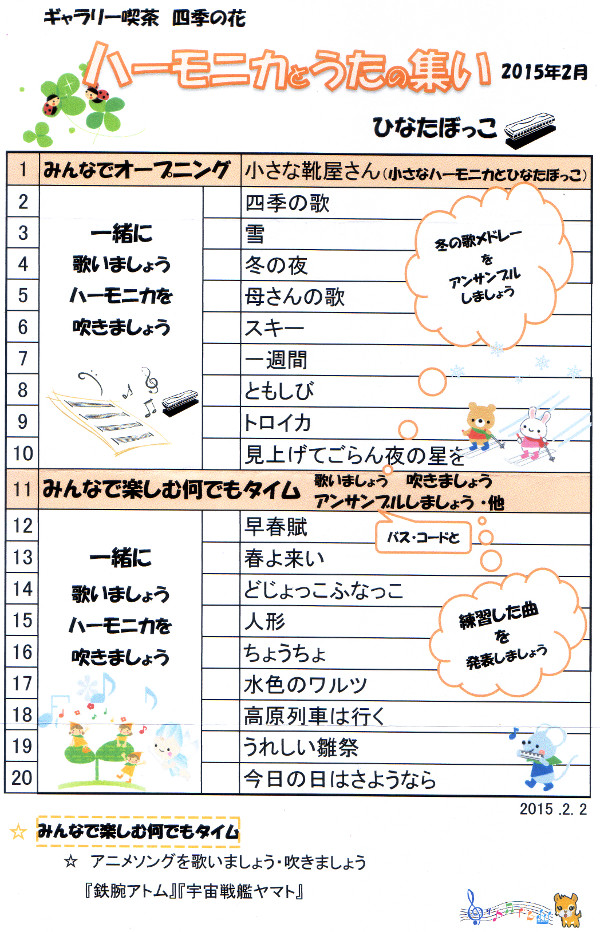 ギャラリー喫茶 四季の花
ハーモニカとうたの集い 2015年2月
ひなたぼっこ
1 みんなでオープニング 小さな靴屋さん(小さなハーモニカとひなたぼっこ)
2 四季の歌
3 雪
4 冬の夜
5 母さんの歌
6 スキー
7 一週間
8 ともしび
9 トロイカ
10 見上げてごらん夜の星を
一緒に
歌いましょう
ハーモニカを
吹きましょう
冬の歌メドレー
を
アンサンブル
しましょう
11 みんなで楽しむ何でもタイム 歌いましょう 吹きましょう
アンサンブルしましょう・他
バス・コードと
12 早春賦
13 春よ来い
14 どじょっこふなっこ
15 人形
16 ちょうちょ
17 水色のワルツ
18 高原列車は行く
19 うれしい雛祭
20 今日の日はさようなら
一緒に
歌いましょう
ハーモニカを
吹きましょう
練習した曲
を
発表しましょう
2015.2.2
☆ みんなで楽しむ何でもタイム
☆ アニメソングを歌いましょう・吹きましょう
『鉄腕アトム』『宇宙戦艦ヤマト』